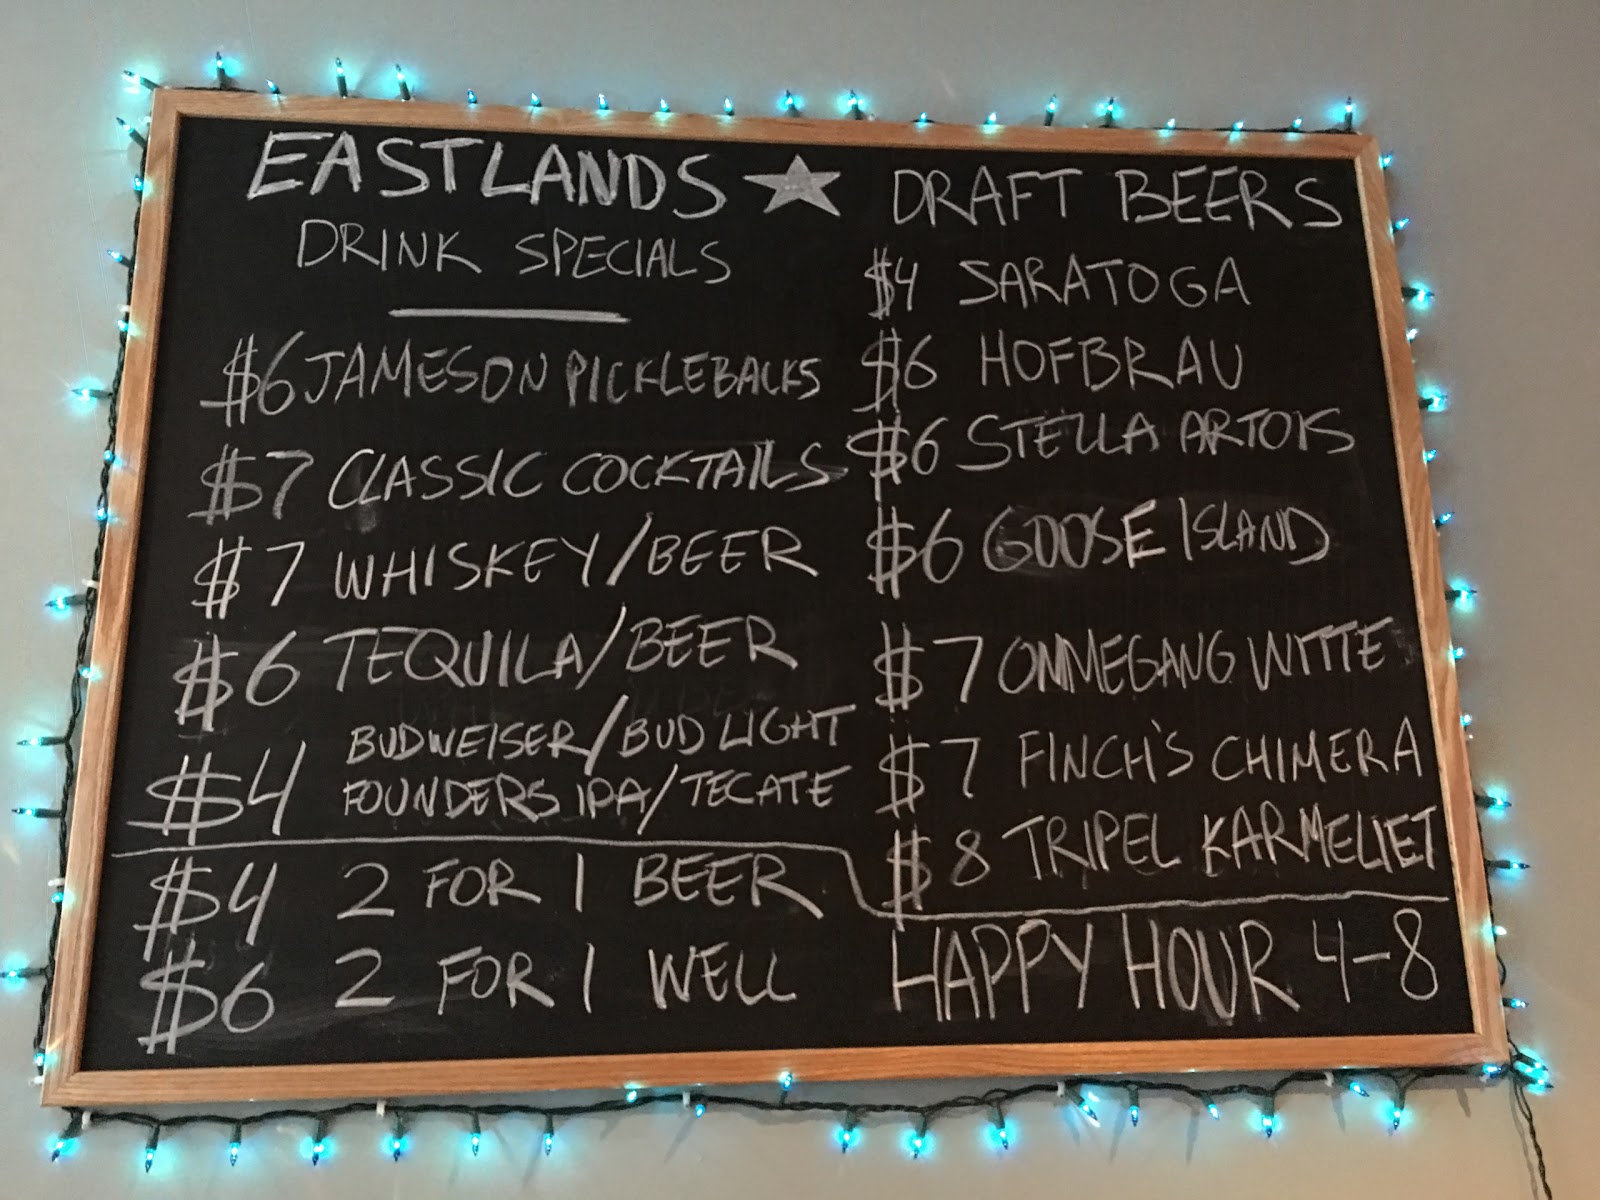 EASTLANDS
DRINK SPECIALS
$6 JAMESON PICKLEBACKS
$7 CLASSIC COCKTAILS
$7 WHISKEY/BEER
$6 TEQUILA/BEER
$4 BUDWEISER/BUD LIGHT
FOUNDERS IPA/TECATE
$4 2 FOR 1 BEER
$6 2 FOR 1 WELL
DRAFT BEERS
$4 SARATOGA
$6 HOFBRAU
$6 STELLA ARTOIS
$6 GOOSE ISLAND
$7 OMMEGANG WITTE
$7 FINCH'S CHIMERA
$8 TRIPEL KARMELIET
HAPPY HOUR 4-8